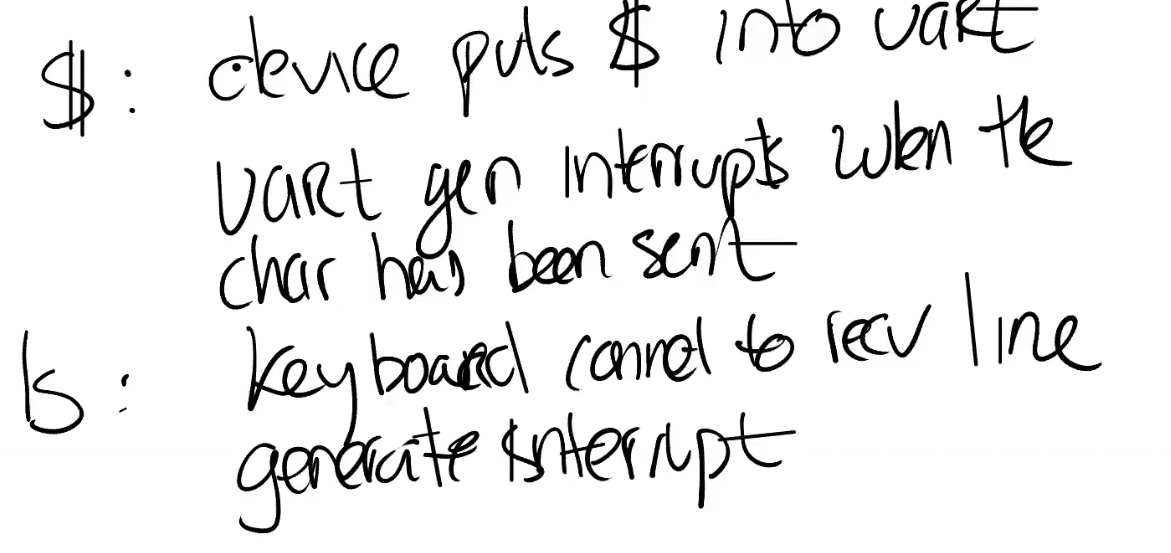 $: device puts $ into uart
uart gen interrupts when the
char has been sent
ls: keyboard connect to recv line
generate interrupt